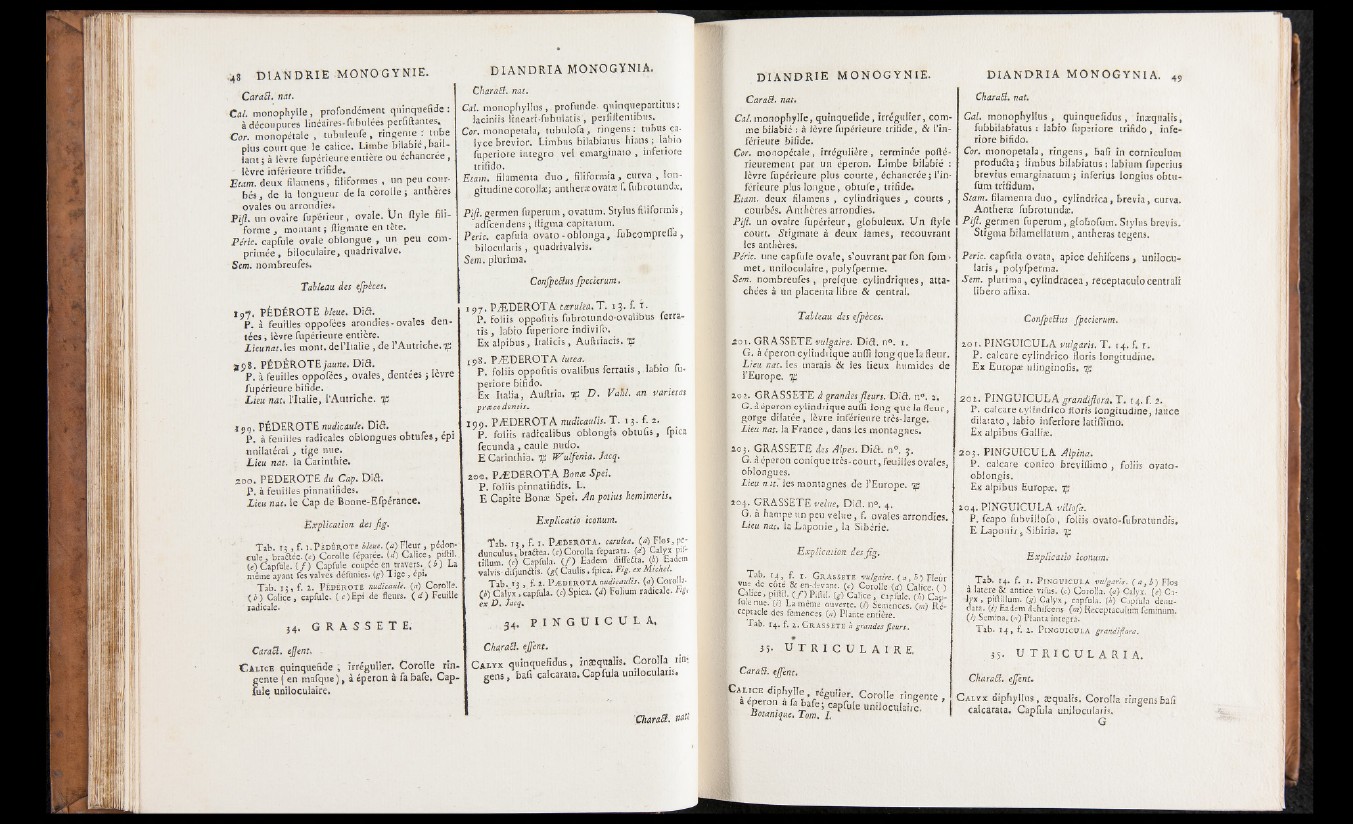 48 DIANDRIE MONOGYNIE.
Caract. nat.
Cal. monophylle, profondément quinquefide :
à découpures linéaires-ſubulées perſiſtantes.
Cor. monopétale , tubuleuſe , ringente : tube
plus court que le calice. Limbe bilabié, bail-
lant ; à lèvre ſupérieure entière ou échancrée ,
lèvre inférieure trifide.
Etam. deux filamens, filiformes , un peu cour-
bés, de la longueur de la corolle ; anthères
ovales ou arrondies.
Piſt. un ovaire ſupérieur , ovale. Un ſtyle fili-
forme , montant ; ſtigmate en tête.
Péric. capſule ovale oblongue , un peu com-
primée , biloculaire, quadrivalve.
Sem. nombreuſes.
Tableau des eſpèces.
197. PÉDÉROTE bleue. Dict.
P. à feuilles oppoſées arondies-ovales den-
tées, lèvre ſupérieure entière.
Lieu nat. les mont. de l'Italie , de l'Autriche. ♃
198. PÉDÉROTE jaune. Dict.
P. à feuilles oppoſées, ovales, dentées ; lèvre
ſupérieure bifide.
Lieu nat. l'Italie, l'Autriche. ♃
199. PÉDEROTE nudicaule. Dict.
P. à feuilles radicales oblongues obtuſes, épi
unilatéral , tige nue.
Lieu nat. la Carinthie.
200. PEDEROTE du Cap. Dict.
P. à feuilles pinnatifides.
Lieu nat. le Cap de Bonne-Eſpérance.
Explication des fig.
Tab. 13, f. 1. PÉDÉROTE bleue. (a) Fleur , pédon-
cule , bractée. (c) Corolle ſéparée. (d) Calice, piſtil.
(e) Capſule. (f) Capſule coupée en travers. (b) La
même ayant ſes valves déſunies. (g) Tige , épi.
Tab. 13, f. 2. PÉDEROTE nudicaule. (a) Corolle.
(b) Calice , capſule. (c) Epi de fleurs. (d) Feuille
radicale.
34. GRASSETE.
Caract. eſſent.
CALICE quinquefide , irrégulier. Corolle rin-
gente (en maſque), à éperon à ſa baſe. Cap-
ſule uniloculaire.
DIANDRIA MONOGYNIA.
Charact. nat.
Cal. monophyllus , profunde quinquepartitus :
laciniis lineari-ſubulatis , perſiſtentibus.
Cor. monopetala, tubuloſa , ringens : tubus ca-
lyce brevior. Limbus bilabiatus hians ; labio
ſuperiore integro vel emarginato , inferiore
trifido.
Etam. filamenta duo, filiformia, curva , lon-
gitudine corollæ ; antheræ ovatæ ſ. ſubrotundæ.
Piſt. germen ſuperum , ovatum. Stylus filiformis,
adſcendens ; ſtigma capitatum.
Peric. capſula ovato-oblonga, ſubcompreſſa ,
bilocularis , quadrivalvis.
Sem. plurima.
Conſpectus ſpecierum.
197. PÆDEROTA cærulea. T. 13. f. 1.
P. foliis oppoſitis ſubrotundo-ovalibus ſerra-
tis , labio ſuperiore indiviſo.
Ex alpibus , Italicis , Auſtriacis. ♃
198. PÆDEROTA lutea.
P. foliis oppoſitis ovalibus ſerratis , labio ſu-
periore bifido.
Ex Italia, Auſtria. ♃ D. Vahl. an varietas
præcedentis.
199. PÆDEROTA nudicaulis. T. 13. f. 2.
P. foliis radicalibus oblongis obtuſis , ſpica
ſecunda , caule nudo.
E Carinthia. ♃ Wulfenia. Jacq.
200. PÆDEROTA Bonæ Spei.
P. foliis pinnatifidis. L.
E Capite Bonæ Spei. An potius hemimeris.
Explicatio iconum.
Tab. 13, f. 1. PÆDEROTA. cærulea. (a) Flos, pe-
dunculus, bractea. (c) Corolla ſeparata. (d) Calyx piſ-
tillum. (e) Capſula. (f) Eadem diſſecta. (b) Eadem
valvis diſjunctis. (g) Caulis, ſpica. Fig. ex Michel.
Tab. 13, f. 2. PÆDEROTA nudicaulis. (a) Corolla.
(b) Calyx, capſula. (c) Spica. (d) Folium radicale. Fig.
ex D. Jacq.
34. PINGUICULA.
Charact. eſſent.
CALYX quinquefidus, inæqualis. Corolla rin-
gens , baſi calcarata. Capſula unilocularis.
Charact. nat.
DIANDRIE MONOGYNIE.
Caract. nat.
Cal. monophylle, quinquefide, irrégulier, com-
me bilabié : à lèvre ſupérieure trifide, & l'in-
férieure bifide.
Cor. monopétale, irrégulière , terminée poſté-
rieurement par un éperon. Limbe bilabié :
lèvre ſupérieure plus courte, échancrée ; l'in-
férieure plus longue , obtuſe, trifide.
Etam. deux filamens , cylindriques , courts ,
courbés. Anthères arrondies.
Piſt. un ovaire ſupérieur, globuleux. Un ſtyle
court. Stigmate à deux lames, recouvrant
les anthères.
Péric. une capſule ovale, s'ouvrant par ſon ſom-
met, uniloculaire, polyſperme.
Sem. nombreuſes , preſque cylindriques, atta-
chées à un placenta libre & central.
Tableau des eſpèces.
201. GRASSETE vulgaire. Dict. n°. 1.
G. à éperon cylindrique auſſi long que la fleur.
Lieu nat. les marais & les lieux humides de
l'Europe. ♃
202. GRASSETE à grandes fleurs. Dict. n°. 2.
G. à éperon cylindrique auſſi long que la fleur ,
gorge dilatée , lèvre inférieure très-large.
Lieu nat. la France , dans les montagnes.
203. GRASSETE des Alpes. Dict. n°. 3.
G. à éperon conique très-court, feuilles ovales,
oblongues.
Lieu nat. les montagnes de l'Europe. ♃
204. GRASSETE velue, Dict. n°. 4.
G. à hampe un peu velue, f. ovales arrondies.
Lieu nat. la Laponie, la Sibérie.
Explication des fig.
Tab. 14, f. 1. GRASSETE vulgaire. (a, b) Fleur
vue de côté & en-devant. (c) Corolle (d) Calice. ( )
Calice, piſtil. (f) Piſtil. (g) Calice , capſule. (h) Cap-
ſule nue. (i) La même ouverte. (l) Semences. (m) Ré-
ceptacle des ſemences (n) Plante entière.
Tab. 14. f. 2. GRASSETE à grandes fleurs.
35. UTRICULAIRE.
Caract. eſſent.
CALICE diphylle , régulier. Corolle ringente ,
à éperon à ſa baſe ; capſule uniloculaire.
Botanique. Tom. I.
DIANDRIA MONOGYNIA. 49
Charact. nat.
Cal. monophyllus , quinquefidus , inæqualis,
ſubbilabiatus : labio ſuperiore trifido , infe-
riore bifido.
Cor. monopetala, ringens, baſi in corniculum
producta ; limbus bilabiatus : labium ſuperius
brevius emarginatum ; inferius longius obtu-
ſum trifidum.
Stam. filamenta duo, cylindrica, brevia, curva.
Antheræ ſubrotundæ.
Piſt. germen ſuperum, globoſum. Stylus brevis.
Stigma bilamellatum , antheras tegens.
Peric. capſula ovata, apice dehiſcens , unilocu-
laris , polyſperma.
Sem. plurima, cylindracea, receptaculo centrali
libero affixa.
Conſpectus ſpecierum.
201. PINGUICULA vulgaris. T. 14. f. 1.
P. calcare cylindrico floris longitudine.
Ex Europæ uliginoſis. ♃
202. PINGUICULA grandiflora. T. 14. f. 2.
P. calcare cylindrico floris longitudine, fauce
dilatato, labio inferiore latiſſimo.
Ex alpibus Galliæ.
203. PINGUICULA Alpina.
P. calcare conico breviſſimo , foliis ovato-
oblongis.
Ex alpibus Europæ. ♃
204. PINGUICULA villoſa.
P. ſcapo ſubvilloſo, foliis ovato-ſubrotundis.
E Laponia, Sibiria. ♃
Explicatio iconum.
Tab. 14. f. 1. PINGUICULA vulgaris. (a, b) Flos
à latere & antice viſus. (c) Corolla. (d) Calyx. (e) Ca-
lyx , piſtillum. (g) Calyx , capſula. (h) Capſula denu-
data. (i) Eadem dehiſcens (m) Receptaculum ſeminum.
(l) Semina. (n) Planta integra.
Tab. 14, f. 2. PINGUICULA grandiflora.
35. UTRICULARIA.
Charact. eſſent.
CALYX diphyllus, æqualis. Corolla ringens baſi
calcarata. Capſula unilocularis.
G